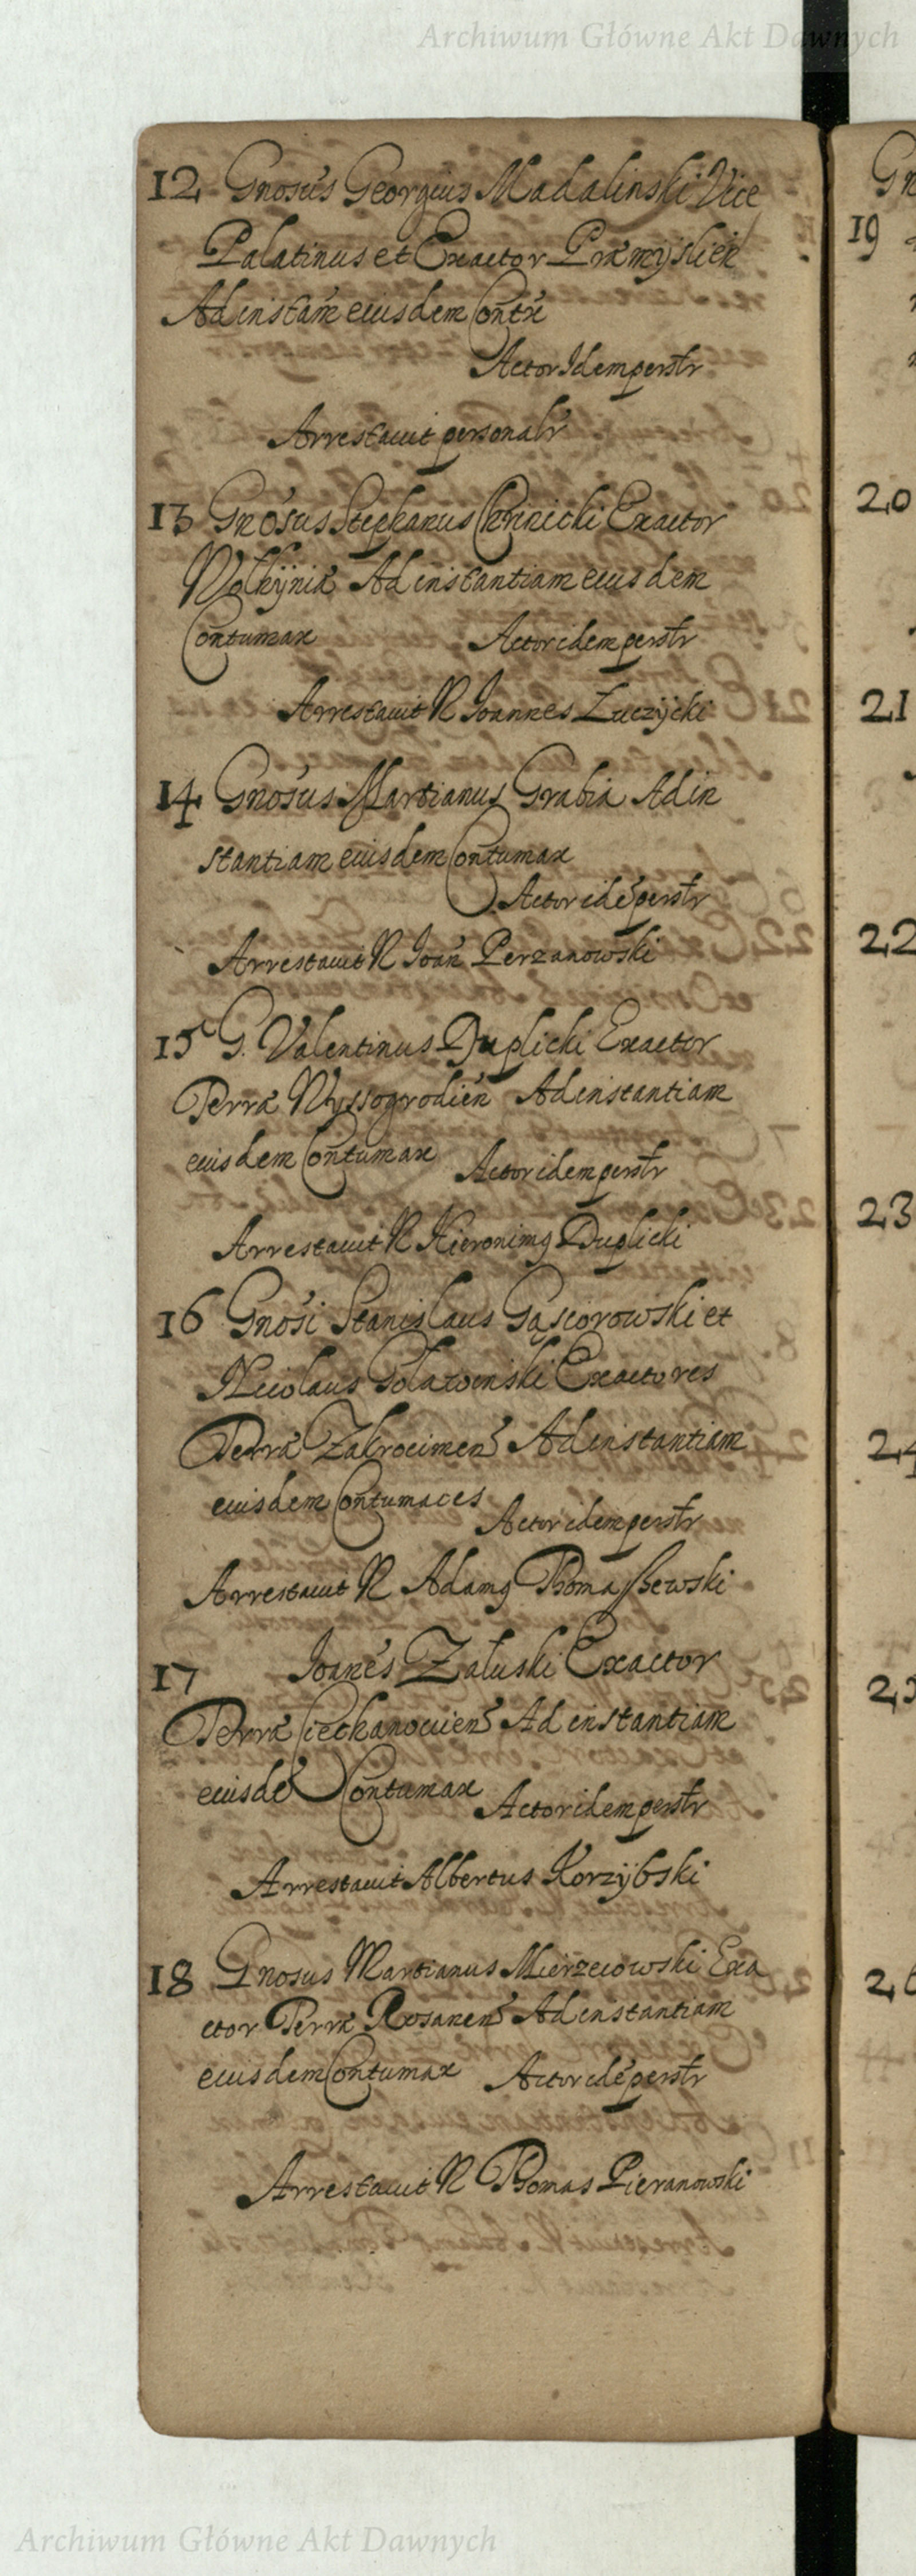 Archiwum Główne Akt Dawnych
12 Gnosus Georgius Madalinski Vice
Palatinus et Exactor Præmyslien
Ad instam eiusdem Contx
Actor Idem perstr
Arrestauit personalr
13 Gnosus Stephanus Exactor
Wolhÿniæ Ad instantiam eiusdem
Contumax Actor idem perstr
Arrestauit N Ioannes Zuczÿcki
14 Gnosus Martianus Grabia Ad in
stantiam eiusdem Contumax
Actor idē perstr
Arrestauit N Ioan Perzanowski
15 G. Valentinus Duplicki Exactor
Terræ Wyssogrodien Ad instantiam
eiusdem Contumax Actor idem perstr
Arrestauit N Hieronimꝯ Duplicki
16 Gnosi Stanislaus Gąsiorowski et
Nicolaus Exactores
Terræ Zakrocimen Ad instantiam
eiusdem Contumaces Actor idem perstr
Arrestauit N Adamꝯ Thomassewski
17 Ioanes Załuski Exactor
Terræ Ciechanouien Ad instantiam
eiusdē Contumax Actor idem perstr
Arrestauit Albertus Korzÿbski
18 Gnosus Martianus Mierzeiowski Exa
ctor Terræ Rosanen Ad instantiam
eiusdem Contumax Actor idē perstr
Arrestauit N Thomas Pieranowski
Gn
19
20
21
22
23
24
25
26
Archiwum Główne Akt Dawnych